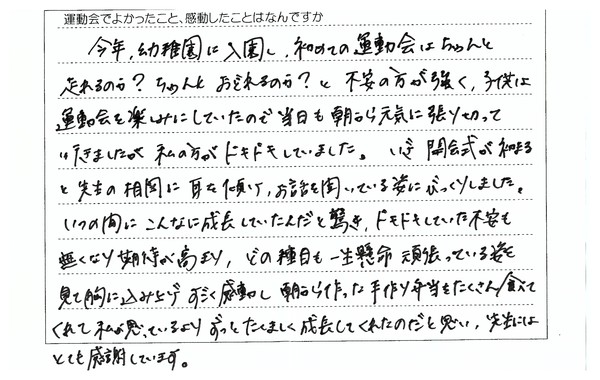 運動会でよかったこと、感動したことはなんですか
今年、幼稚園に入園し、初めての運動会はちゃんと
走れるのか？ちゃんとおどれるのか？と不安の方が強く、子供は
運動会を楽しみにしていたので当日も朝から元気に張り切って
いきましたが私の方がドキドキしていました。いざ開会式が始まる
と先生の相図に耳を傾け、お話を聞いている姿にびっくりしました。
いつの間にこんなに成長していたんだと驚き、ドキドキしていた不安も
無くなり期待が高まり、どの種目も一生懸命頑張っている姿を
見て胸に込み上げすごく感動し朝から作った手作り弁当をたくさん食べて
くれて私が思っているよりずっとたくましく成長してくれたのだと思い、先生には
とても感謝しています。